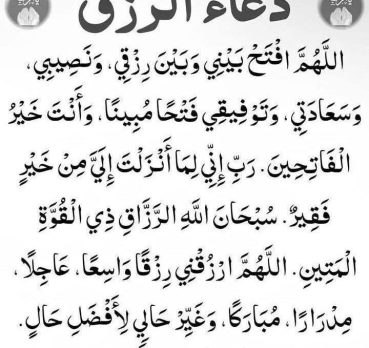 دعاء الرزق
اللَّهُمَّ افْتَحْ بَيْنِي وَبَيْنَ رِزْقِي، وَنَصِيبِي،
وَسَعَادَتِي، وَتَوْفِيقِي فَتْحًا مُبِينًا، وَأَنْتَ خَيْرُ
الْفَاتِحِينَ. رَبِّ إِنِّي لِمَا أَنْزَلْتَ إِلَيَّ مِنْ خَيْرٍ
فَقِيرٌ. سُبْحَانَ اللَّهِ الرَّزَّاقِ ذِي الْقُوَّةِ
الْمَتِينِ. اللَّهُمَّ ارْزُقْنِي رِزْقًا وَاسِعًا، عَاجِلًا،
مِدْرَارًا، مُبَارَكًا، وَغَيِّرْ حَالِي لِأَفْضَلِ حَالٍ.